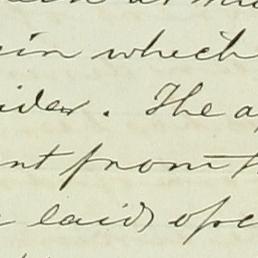 in which
ider. The a
nt from
laid ope